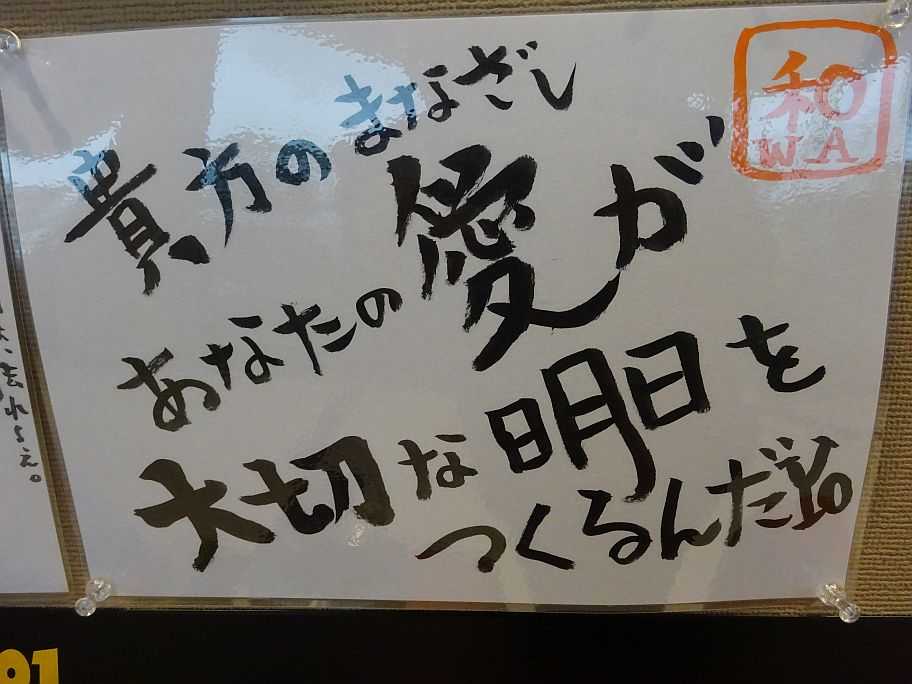 貴方のまなざし
あなたの愛が
大切な明日を
つくるんだYo
和
WA
忘れちゃえ。
01